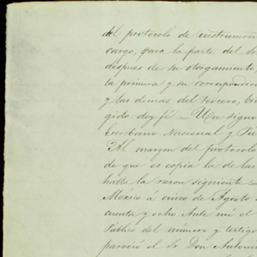 del protocolo de instrumen
cargo, para la parte del
despues de su otorgamiento,
la primera y su correspondien
y las demas del tercero,
gido doy fé — Un signo
Escribano Nacional y
Al margen del protocolo
de que es copia la de
halla la razon siguiente
Mexico á cinco de Agosto
cuenta y ocho Ante mi el
Público del número y testigo
pareció el Don Antonio